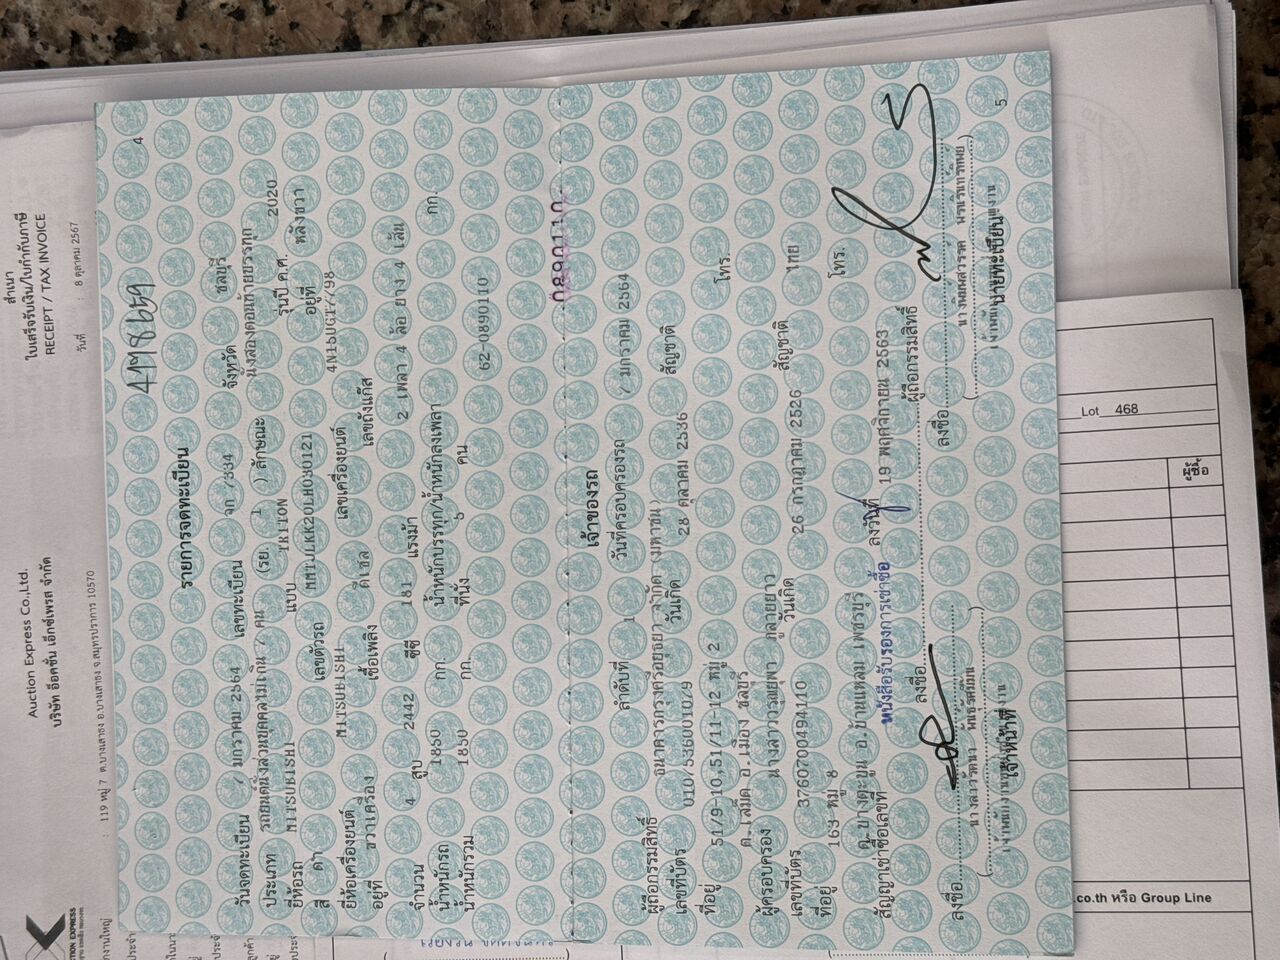 4
4498659
รายการจดทะเบียน
วันจดทะเบียน 7 มกราคม 2564 เลขทะเบียน 7334 จังหวัด ชลบุรี
ประเภท รถยนต์นั่งส่วนบุคคลไม่เกิน 7 คน (รย. 1 ) ลักษณะ นั่งสองตอนท้ายบรรทุก
ยี่ห้อรถ MITSUBISHI แบบ TRITON รุ่นปี ค.ศ. 2020
สี ดำ เลขตัวรถ อยู่ที่ หลังขวา
ยี่ห้อเครื่องยนต์ MITSUBISHI เลขเครื่องยนต์
อยู่ที่ ขวาเครื่อง เชื้อเพลิง ดีเซล เลขถังแก๊ส
จำนวน 4 สูบ 2442 ซีซี 181 แรงม้า 2 เพลา 4 ล้อ ยาง 4 เส้น
น้ำหนักรถ 1850 กก. น้ำหนักบรรทุก/น้ำหนักลงเพลา กก.
น้ำหนักรวม 1850 กก. ที่นั่ง คน 62-0890110
0890110
เจ้าของรถ
ลำดับที่ 1 วันที่ครอบครองรถ 7 มกราคม 2564
ผู้ถือกรรมสิทธิ์ ธนาคารกรุงศรีอยุธยา จำกัด (มหาชน)
เลขที่บัตร 0107536001079 วันเกิด 28 ตุลาคม 2536 สัญชาติ
ที่อยู่ 51/9-10,51/11-12 หมู่ 2 โทร.
ต.เสม็ด อ.เมือง ชลบุรี
ผู้ครอบครอง นางสาว
เลขที่บัตร 3760700494110 วันเกิด 26 กรกฎาคม 2526 สัญชาติ ไทย
ที่อยู่ 163 หมู่ 8 โทร.
ต.บางตะบูน อ.บ้านแหลม เพชรบุรี
สัญญาเช่าซื้อเลขที่ หนังสือรับรองการเช่าซื้อ ลงวันที่ 19 พฤศจิกายน 2563 ผู้ถือกรรมสิทธิ์
ลงชื่อ ลงชื่อ ลงชื่อ
เจ้าหน้าที่ นายทะเบียน
5
สำเนา
ใบเสร็จรับเงิน/ใบกำกับภาษี
RECEIPT / TAX INVOICE
วันที่ : 8 ตุลาคม 2567
Auction Express Co.,Ltd.
บริษัท อ๊อคชั่น เอ็กซ์เพรส จำกัด
: 119 หมู่ 7 ต.บางเสาธง อ.บางเสาธง จ.สมุทรปราการ 10570
Lot 468
ผู้ซื้อ
.co.th หรือ Group Line